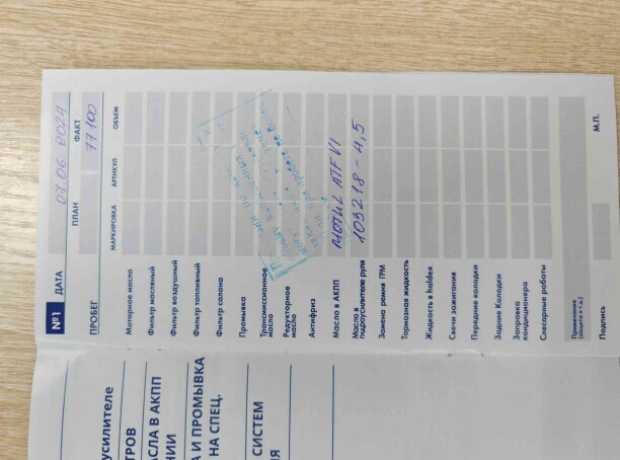 №1 ДАТА 07.06 2024
ПЛАН ФАКТ
ПРОБЕГ 77100
МАРКИРОВКА АРТИКУЛ ОБЪЕМ
Моторное масло
Фильтр масляный
Фильтр воздушный
Фильтр топливный
Фильтр салона
Промывка
Трансмиссионное масло
Редукторное масло
Антифриз
Масло в АКПП MOTUL ATF VI
Масло в гидроусилителе руля 109218 - 4,5
Замена ремня ГРМ
Тормозная жидкость
Жидкость в haldex
Свечи зажигания
Передние колодки
Задние Колодки
Заправка кондиционера
Слесарные работы
Примечание
Подпись М.П.
усилителе
ТРОВ
АСЛА В АКПП
НИИ
А И ПРОМЫВКА
НА СПЕЦ.
СИСТЕМ